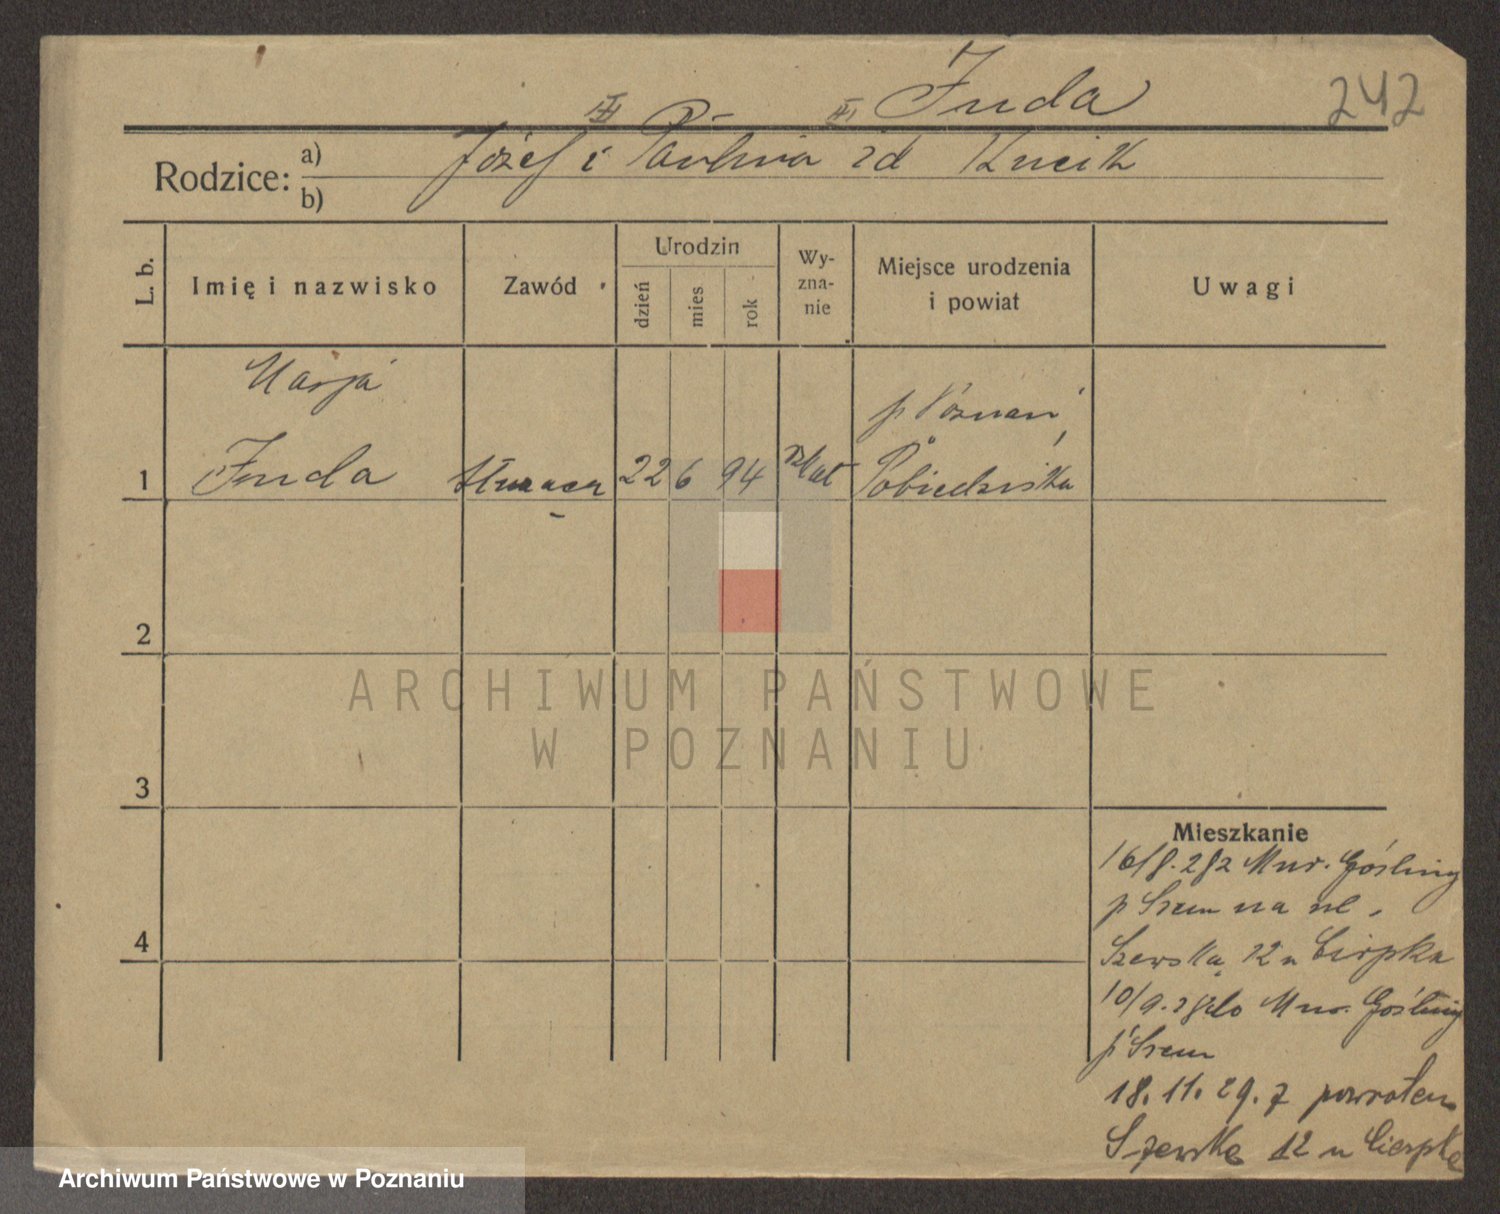 Juda
242
III III
Rodzice: a) Józef i Paulina zd Kucik
b)
L. b. Imię i nazwisko Zawód Urodzin dzień mies rok Wyznanie Miejsce urodzenia i powiat Uwagi
Marja p Poznań
1 Juda służąca 22 6 94 rz kat Pobiedziska
2
ARCHIWUM PAŃSTWOWE
W POZNANIU
3
Mieszkanie
16/8.28 z Mur. Gośliny
p Srem na ul.
4
Szewska 12 u Cierpka
10/9.28 do Mur. Gośliny
p Srem
18.11.29. z powrotem
Szewska 12 u Cierpka
Archiwum Państwowe w Poznaniu